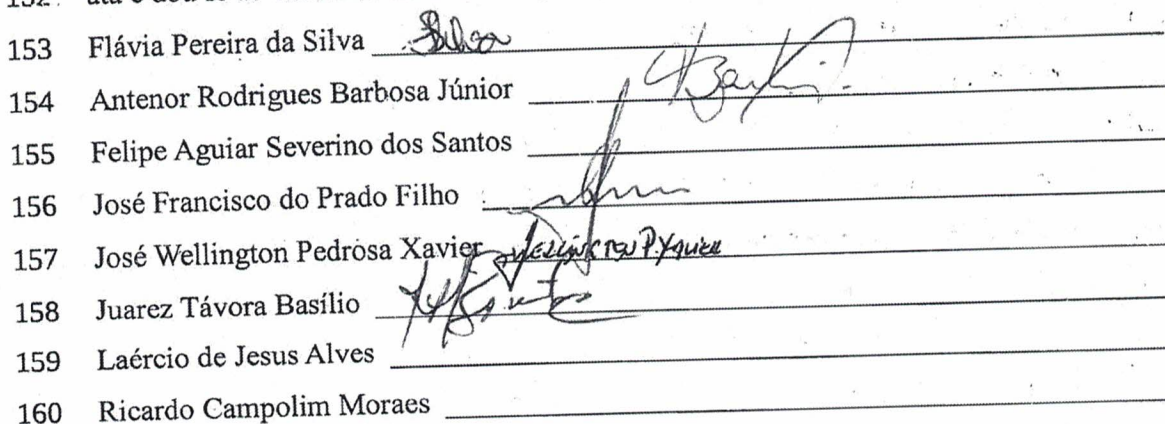 153 Flávia Pereira da Silva Silva
154 Antenor Rodrigues Barbosa Júnior
155 Felipe Aguiar Severino dos Santos
156 José Francisco do Prado Filho
157 José Wellington Pedrosa Xavier
158 Juarez Távora Basílio
159 Laércio de Jesus Alves
160 Ricardo Campolim Moraes